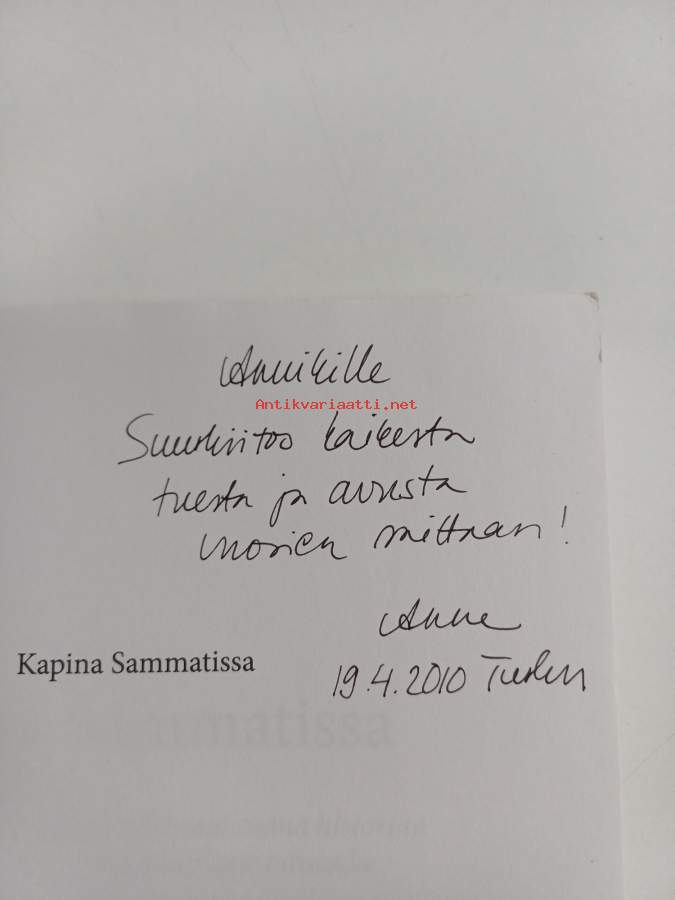 Annikille
Antikvariaatti.net
Suurkiitos kaikesta
tuesta ja avusta
vuosien mittaan!
Anne
Kapina Sammatissa
19.4.2010 Turku
mmatissa